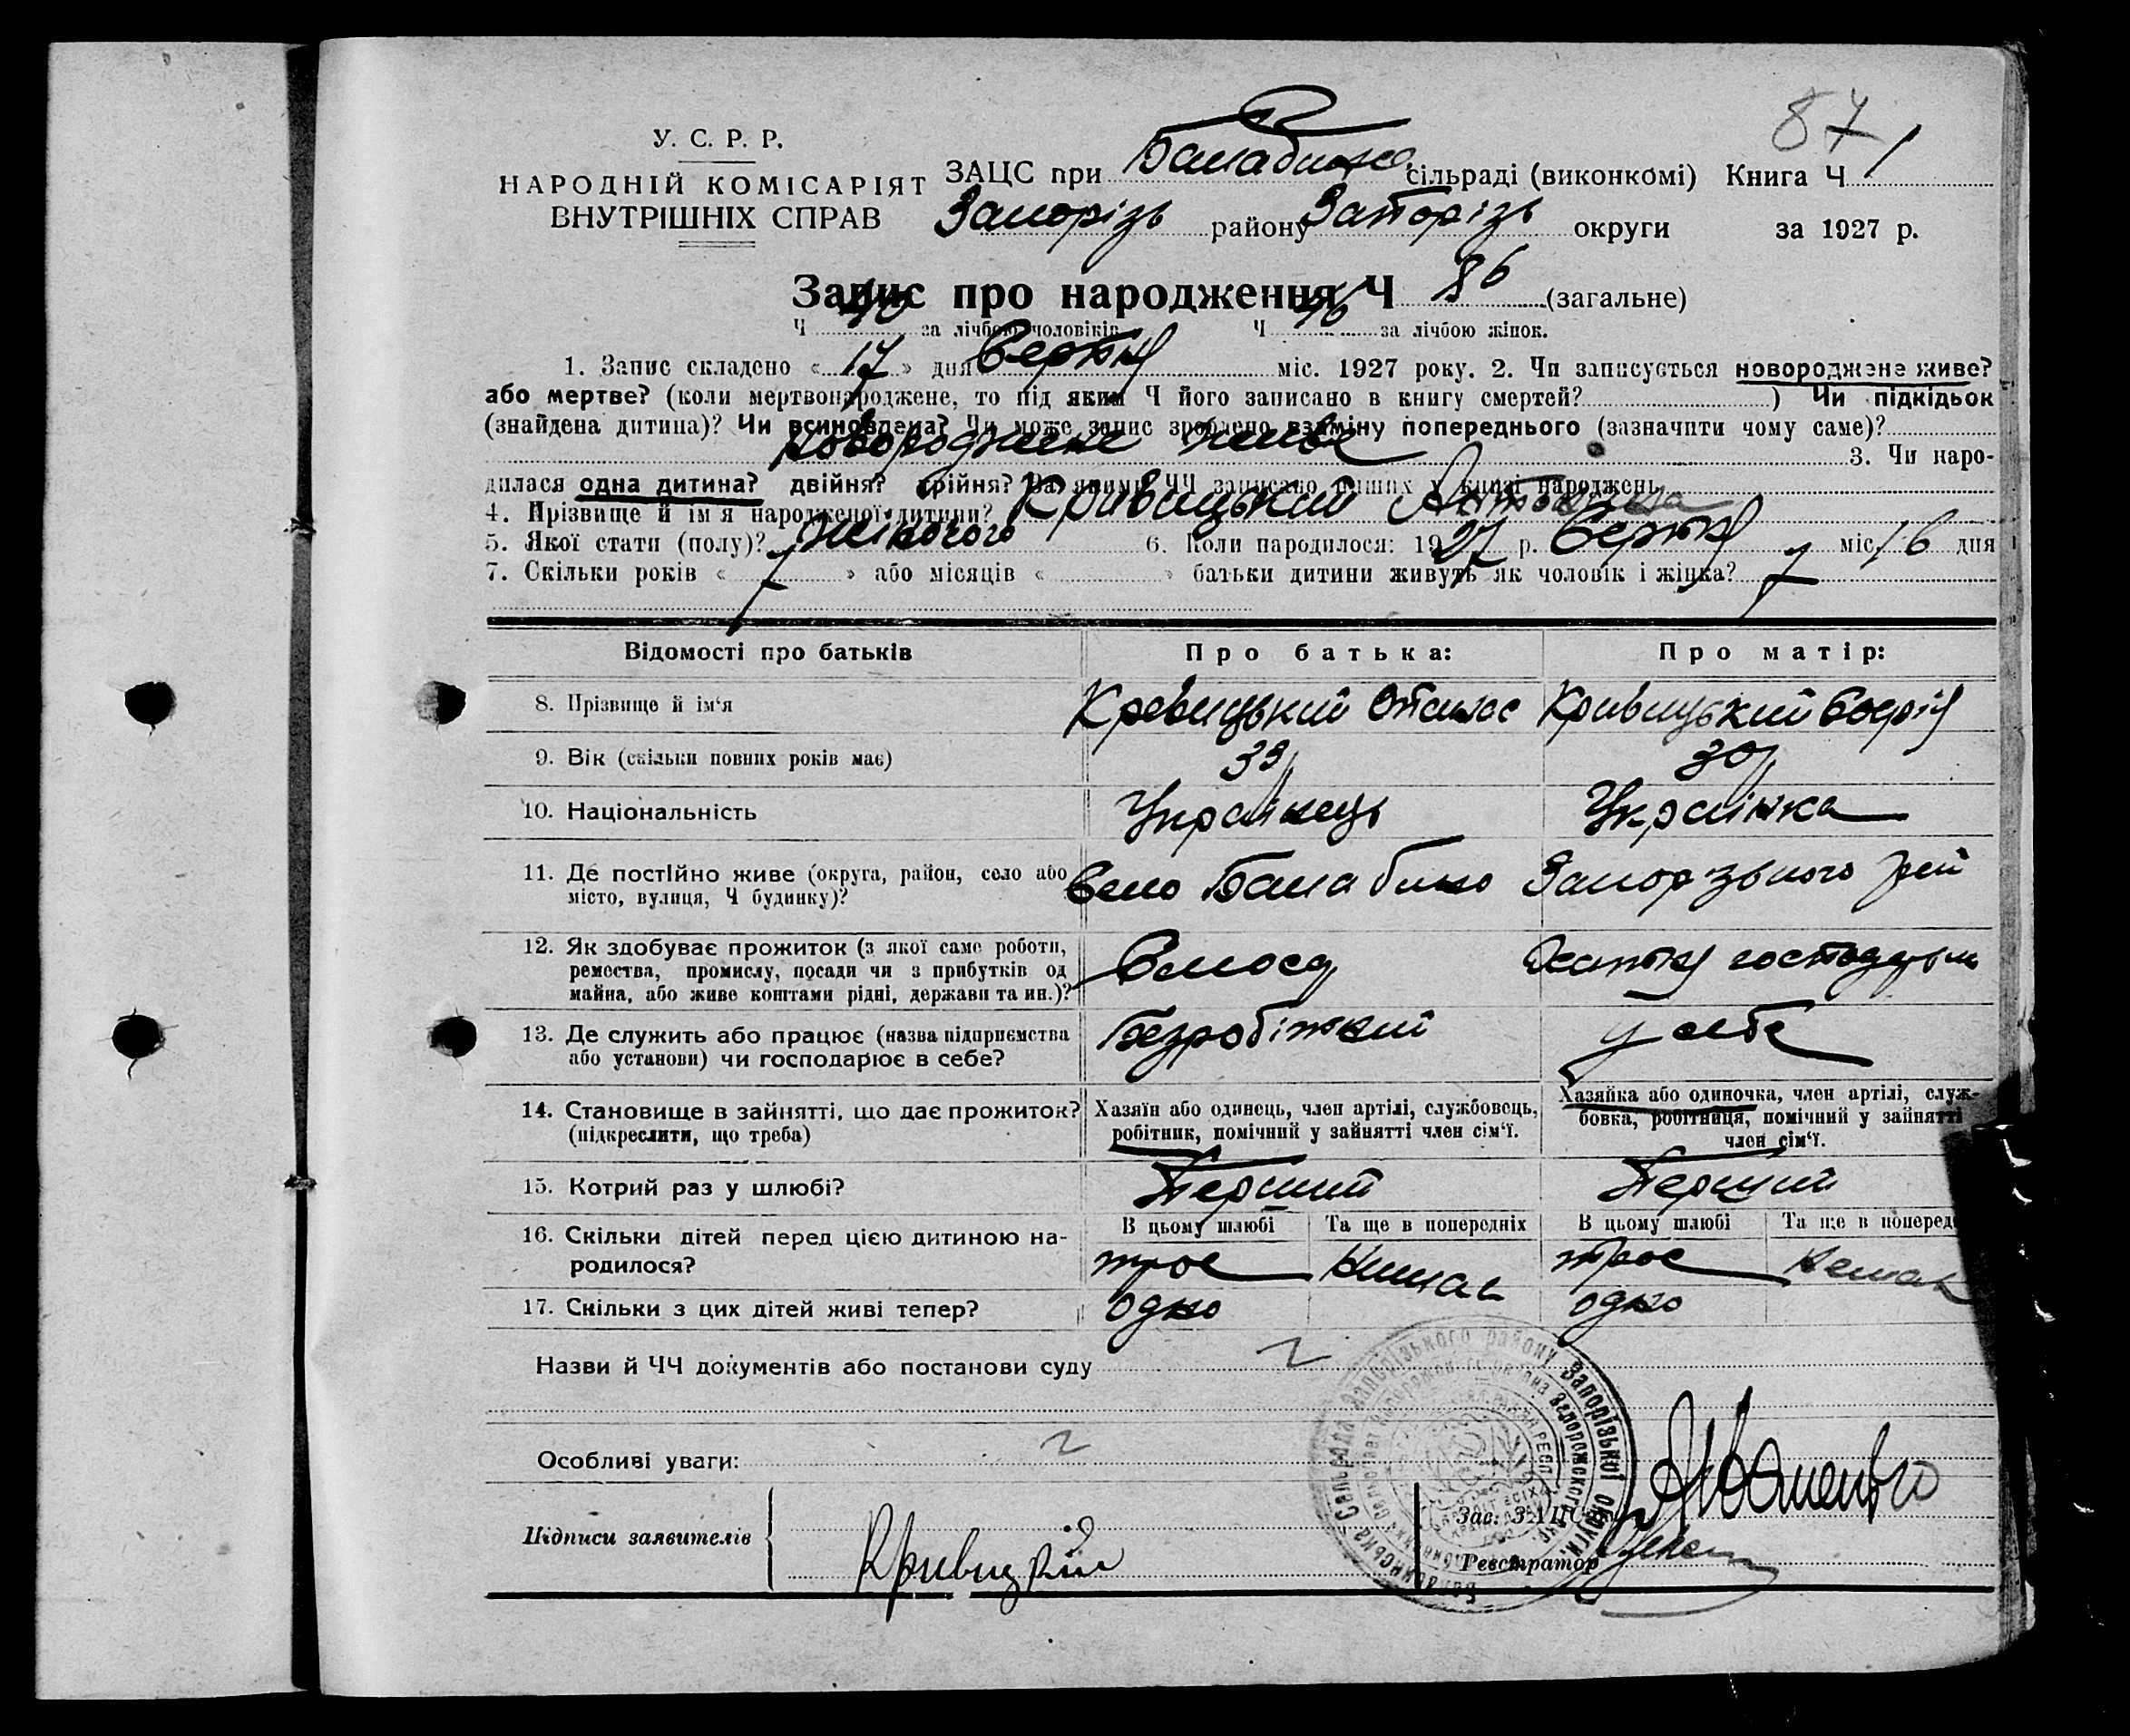 87
У. С. Р. Р.
НАРОДНІЙ КОМІСАРІЯТ
ВНУТРІШНІХ СПРАВ
ЗАЦС при Балабино сільраді (виконкомі) Книга Ч 1
Запорізь району Запорізь округи за 1927 р.
Запис про народження Ч 86 (загальне)
Ч за лічбою чоловіків Ч 46 за лічбою жінок.
1. Запис складено « 17 » дня Серпня міс. 1927 року. 2. Чи записується новороджене живе?
або мертве? (коли мертвонароджене, то під яким Ч його записано в книгу смертей? ) Чи підкідьок
(знайдена дитина)? Чи всиновлена? Чи може запис зроблено взаміну попереднього (зазначити чому саме)?
новороджене живе 3. Чи наро-
дилася одна дитина? двійня? трійня? За якими ЧЧ записано инших у книзі народжень
4. Прізвище й ім'я народженої дитини? Кривицький Антонина
5. Якої стати (полу)? жіночого 6. Коли народилося: 1927 р. Серпня міс. 16 дня
7. Скільки років « 7 » або місяців « » батьки дитини живуть як чоловік і жінка? 7
Відомості про батьків Про батька: Про матір:
8. Прізвище й ім'я Кревицький Опанас Кривицький
9. Вік (скільки повних років має) 33 30
10. Національність Українець Українка
11. Де постійно живе (округа, район, село або
місто, вулиця, Ч будинку)? Село Балабино Запорізького рай
12. Як здобуває прожиток (з якої саме роботи,
ремества, промислу, посади чи з прибутків од
майна, або живе коштами рідні, держави та ин.)? Слюсар Хатня господарка
13. Де служить або працює (назва підприємства
або установи) чи господарює в себе? Безробітний у себе
14. Становище в зайнятті, що дає прожиток?
(підкреслити, що треба)
Хазяїн або одинець, член артілі, службовець,
робітник, помічний у зайнятті член сім'ї.
Хазяйка або одиночка, член артілі, служ-
бовка, робітниця, помічний у зайнятті
член сім'ї.
15. Котрий раз у шлюбі? Перший Перший
16. Скільки дітей перед цією дитиною на-
родилося?
В цьому шлюбі Та ще в попередніх В цьому шлюбі Та ще в поперед
троє Немає троє Немає
17. Скільки з цих дітей живі тепер? одно одно
Назви й ЧЧ документів або постанови суду
Особливі уваги:
Підписи заявителів Кривицкій
Зав. ЗАЦС'ом
Реєстратор